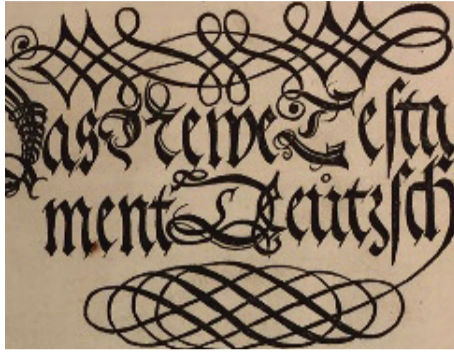 Das Newe Testa
ment Deůtzsch